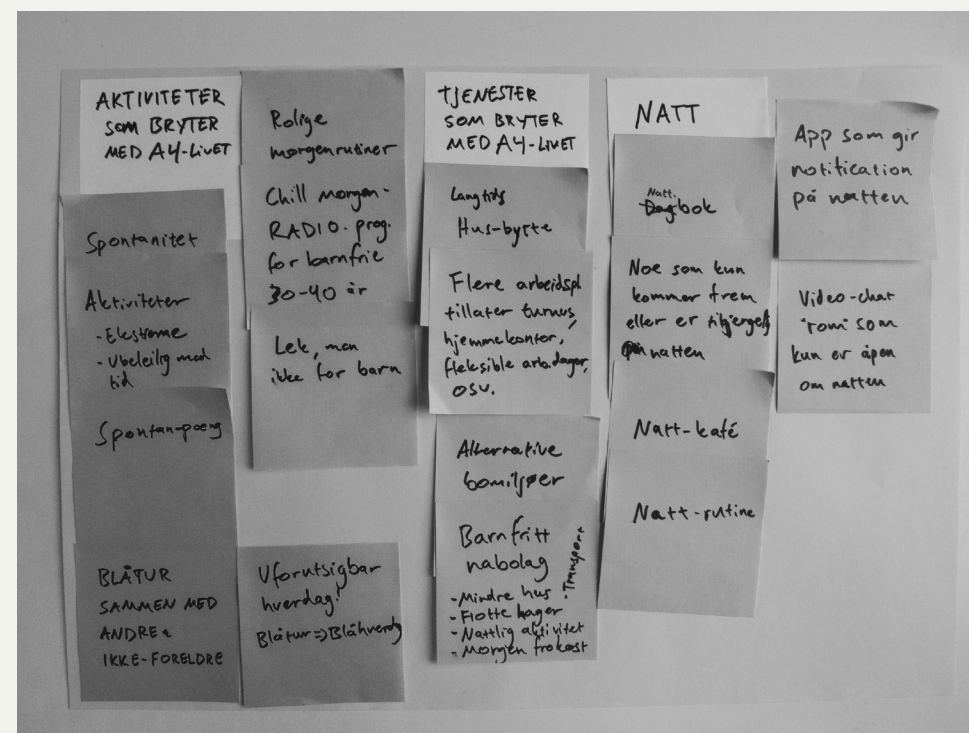 AKTIVITETER
SOM BRYTER
MED A4-LIVET
Spontanitet
Aktiviteter
- Ekstreme
- Ubeleilig med
tid
Spontan-poeng
BLÅTUR
SAMMEN MED
ANDRE
IKKE-FORELDRE
Rolige
morgenrutiner
Chill morgen-
RADIO-prog.
for barnfrie
30-40 år
Lek, men
ikke for barn
Uforutsigbar
hverdag!
Blåtur => Blåhverdg
TJENESTER
SOM BRYTER
MED A4-LIVET
Langtids
Hus-bytte
Flere arbeidspl
tillater turnus,
hjemmekontor,
fleksible arb.dager,
osv.
Alternative
bomiljøer
Barnfritt
nabolag
- Mindre hus
- Flotte hager
- Nattlig aktivitet
- Morgen frokost
- Transport
NATT
Natt.
Dagbok
Noe som kun
kommer frem
eller er
natten
Natt-kafé
Natt-rutine
App som gir
notification
på natten
Video-chat
"rom" som
kun er åpen
om natten